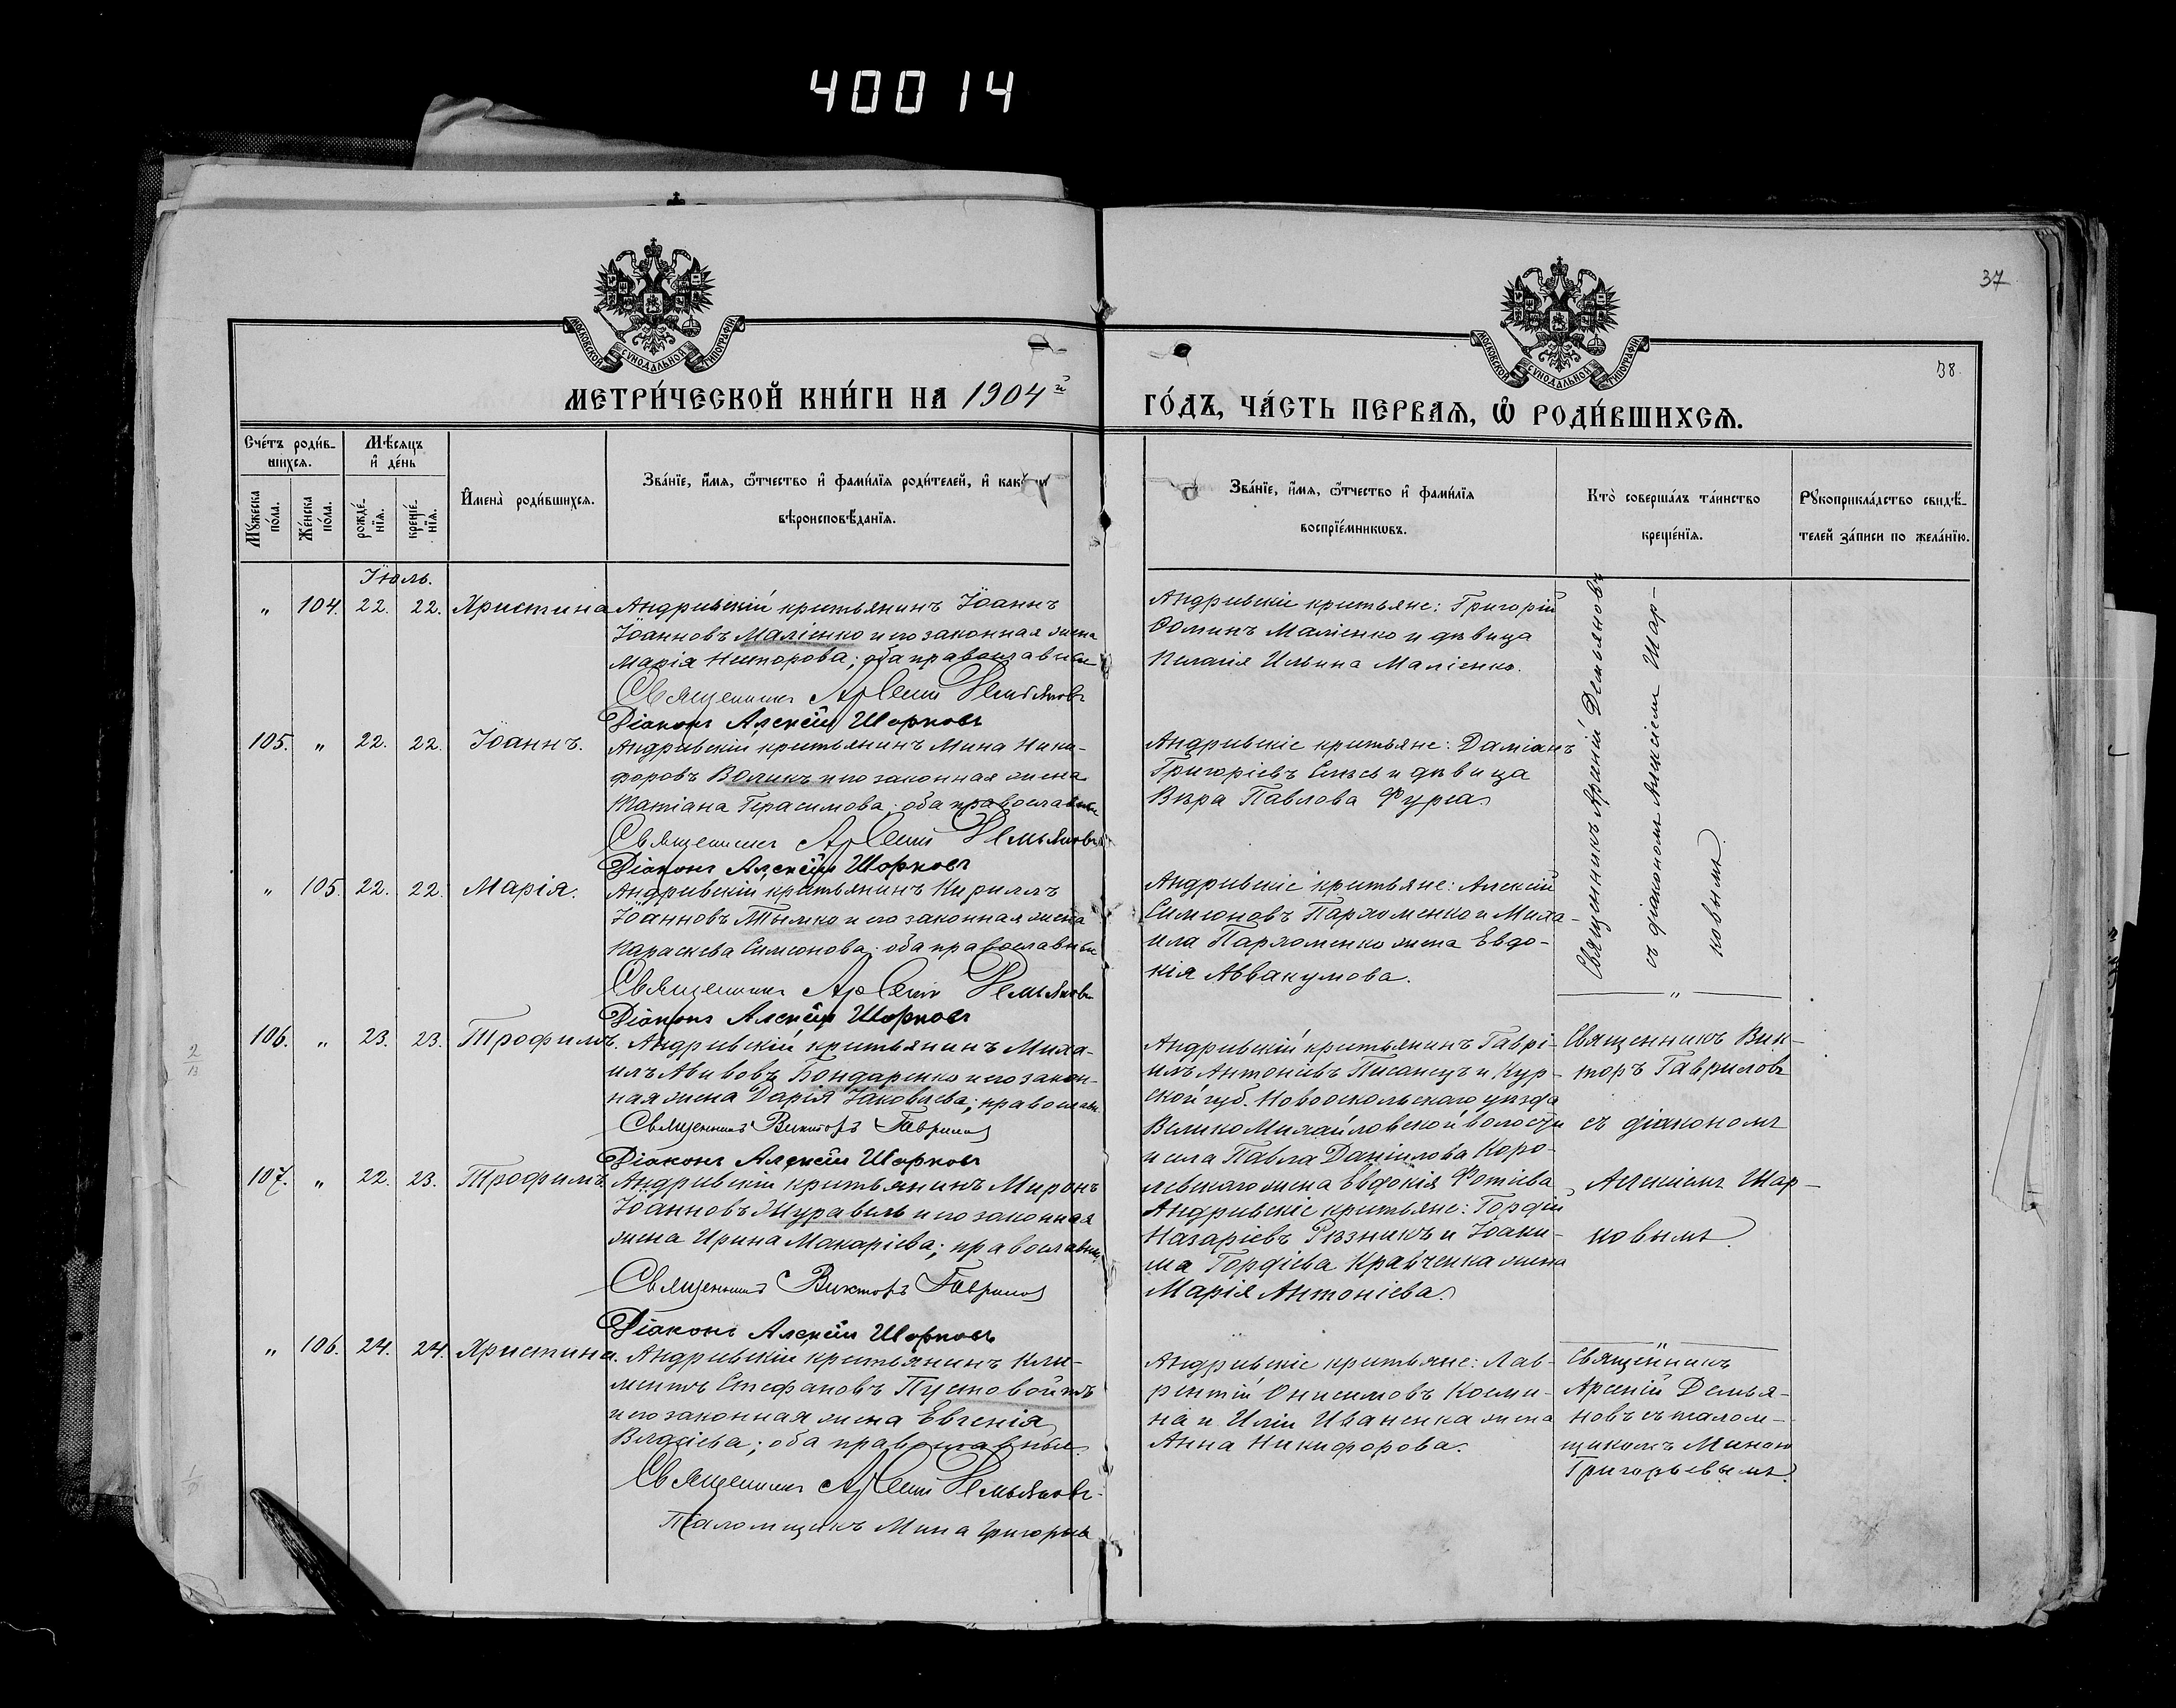 40014
37
38.
МОСКОВСКОЙ СѴНОДАЛЬНОЙ ТИПОГРАФІИ
МОСКОВСКОЙ СѴНОДАЛЬНОЙ ТИПОГРАФІИ
МЕТРИ́ЧЕСКОЙ КНИ́ГИ НА 1904й
ГО́ДЪ, ЧА́СТЬ ПЕРВАѦ, Ѡ҆ РОДИ́ВШИХСѦ.
Сче́тъ роди́в-
шихся.
Мѣ́сяцъ
и҆ де́нь
Мꙋ́жеска
по́ла.
Же́нска
по́ла.
рожде́-
нїя.
креще́-
нїя.
И҆мена̀ роди́вшихся.
Зва́нїе, и҆́мя, ѻ҆́тчество и҆ фами́лїя роди́телей, и҆
вѣроисповѣ́данїя.
Зва́нїе, и҆́мя, ѻ҆́тчество и҆ фами́лїя
воспрїе́мникѡвъ.
Кто̀ соверша́лъ та́инство
креще́нїя.
Рꙋкоприкла́дство свидѣ́-
телей за́писи по жела́нїю.
Іюль.
„ 104. 22. 22. Христина
Андреевскій крестьянинъ Іоаннъ
Іоанновъ Маліенко и его законная жена
Марія Несторова; оба православные
Священникъ Арсеній Демьяновъ
Діаконъ Алексій Шарковъ
Андреевскіе крестьяне: Григорій
Ѳоминъ Маліенко и дѣвица
Пелагія Ильина Маліенко.
Священникъ Арсеній Демьяновъ
съ діакономъ Алексіемъ Шар-
ковымъ.
105. „ 22. 22. Іоаннъ.
Андреевскій крестьянинъ Мина Ники-
форовъ Воликъ и его законная жена
Татіана Герасимова; оба православные
Священникъ Арсеній Демьяновъ
Діаконъ Алексій Шарковъ
Андреевскіе крестьяне: Даміанъ
Григоріевъ и дѣвица
Вѣра Павлова Фурса.
„ 105. 22. 22. Марія.
Андреевскій крестьянинъ Кириллъ
Іоанновъ Тымко и его законная жена
Параскева Симеонова; оба православные
Священникъ Арсеній Демьяновъ
Діаконъ Алексій Шарковъ
Андреевскіе крестьяне: Алексій
Симеоновъ Пархоменко и Миха-
ила Пархоменко жена Евдо-
кія Аввакумова.
106. „ 23. 23. Трофимъ.
Андреевскій крестьянинъ Миха-
илъ Авивовъ Бондаренко и его закон-
ная жена Дарія Іаковлева; православн.
Священникъ Викторъ Гавриловъ
Діаконъ Алексій Шарковъ
Андреевскій крестьянинъ Гаврі-
илъ Антоніевъ Писанецъ и Кур-
ской губ. Новооскольскаго уѣзда
Велико Михайловской волости
и села Павла Даніилова Коро-
левскаго жена Евдокія Фотіева
Священникъ Вик-
торъ Гавриловъ
съ діакономъ
Алексіемъ Шар-
ковымъ.
107. „ 22. 23. Трофимъ
Андреевскій крестьянинъ Миронъ
Іоанновъ Журавель и его законная
жена Ирина Макаріева; православные
Священникъ Викторъ Гавриловъ
Діаконъ Алексій Шарковъ
Андреевскіе крестьяне: Гордій
Назаріевъ Рѣзникъ и Іоаки-
ма Гордіева Кравченка жена
Марія Антоніева.
„ 106. 24. 24. Христина.
Андреевскій крестьянинъ Кли-
ментъ Стефановъ Пустовойтъ
и его законная жена Евгенія
; оба православные.
Священникъ Арсеній Демьяновъ.
Псаломщикъ Мина Григорьевъ
Андреевскіе крестьяне: Лав-
рентій Онисимовъ Косми-
на и Иліи Иваненка жена
Анна Никифорова.
Священникъ
Арсеній Демья-
новъ съ псалом-
щикомъ Миною
Григорьевымъ.